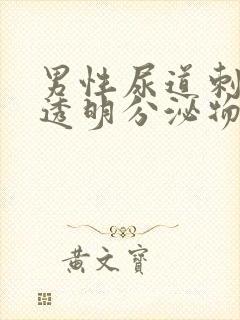 男性尿道刺
透明分泌物
黄文宝